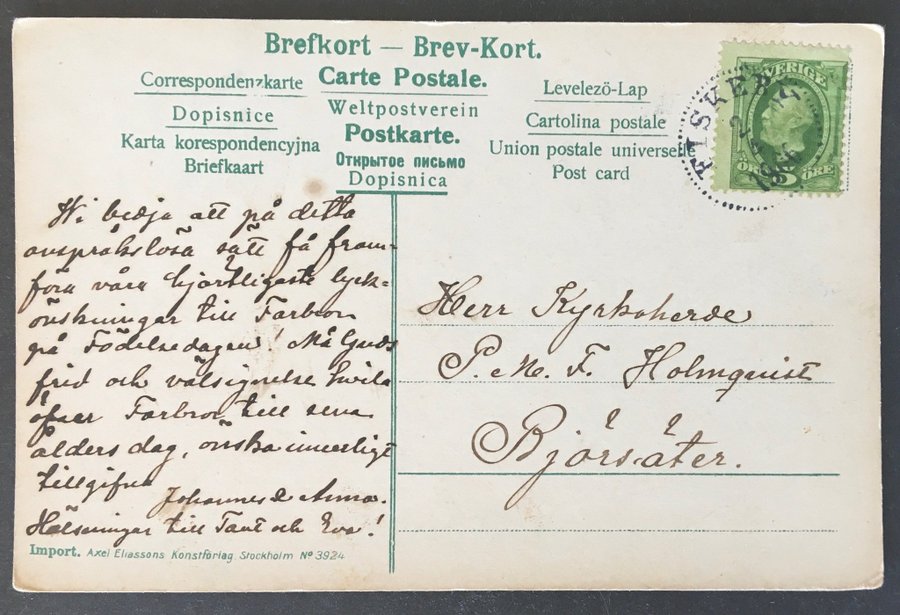 Brefkort — Brev-Kort.
Correspondenzkarte Carte Postale. Levelezö-Lap
Dopisnice Weltpostverein Cartolina postale
Karta korespondencyjna Postkarte. Union postale universelle
Briefkaart Открытое письмо Post card
Dopisnica
SVERIGE
5 ÖRE
FISKEB
Vi bedja att på detta
anspråkslösa sätt få fram-
föra våra hjärtligaste lyck-
önskningar till Farbror
på Födelsedagen! Må Guds
frid och välsignelse hvila
öfver Farbror till sena
ålders dag, önska innerligt
tillgifna
Johannes & Anna.
Hälsningar till Tant och Eva!
Herr Kyrkoherde
P. M. F. Holmquist
Björsäter.
Import. Axel Eliassons Konstförlag Stockholm No 3924